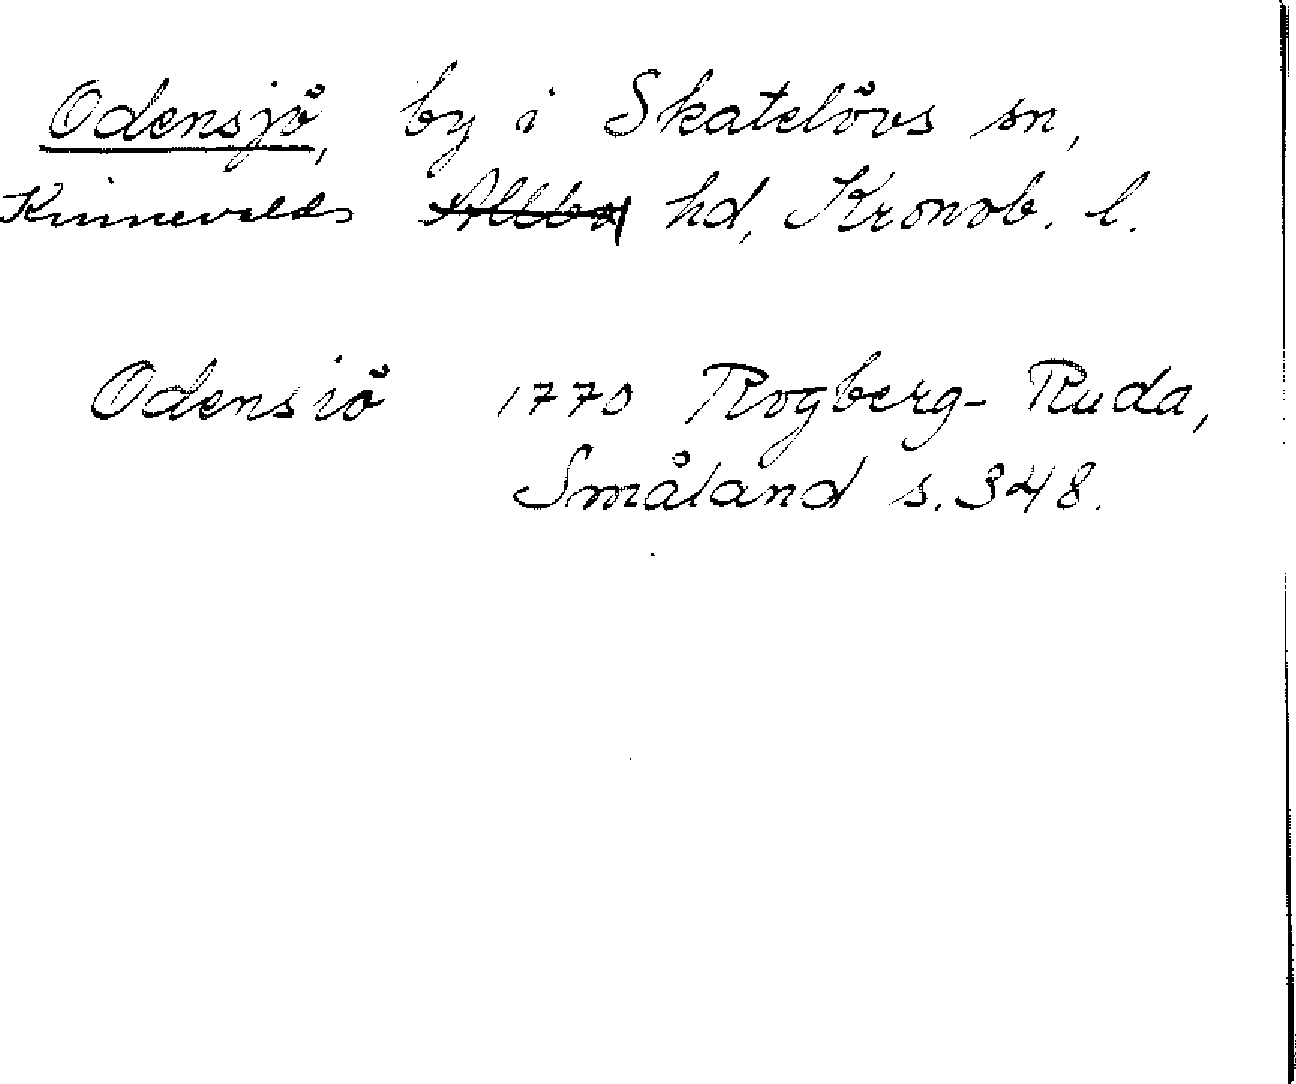 Odensjö, by i Skatelövs sn,
Kinnevalds Allbo hd, Kronob. l.
Odensiö 1770 Rogberg-Ruda,
Småland s. 348.